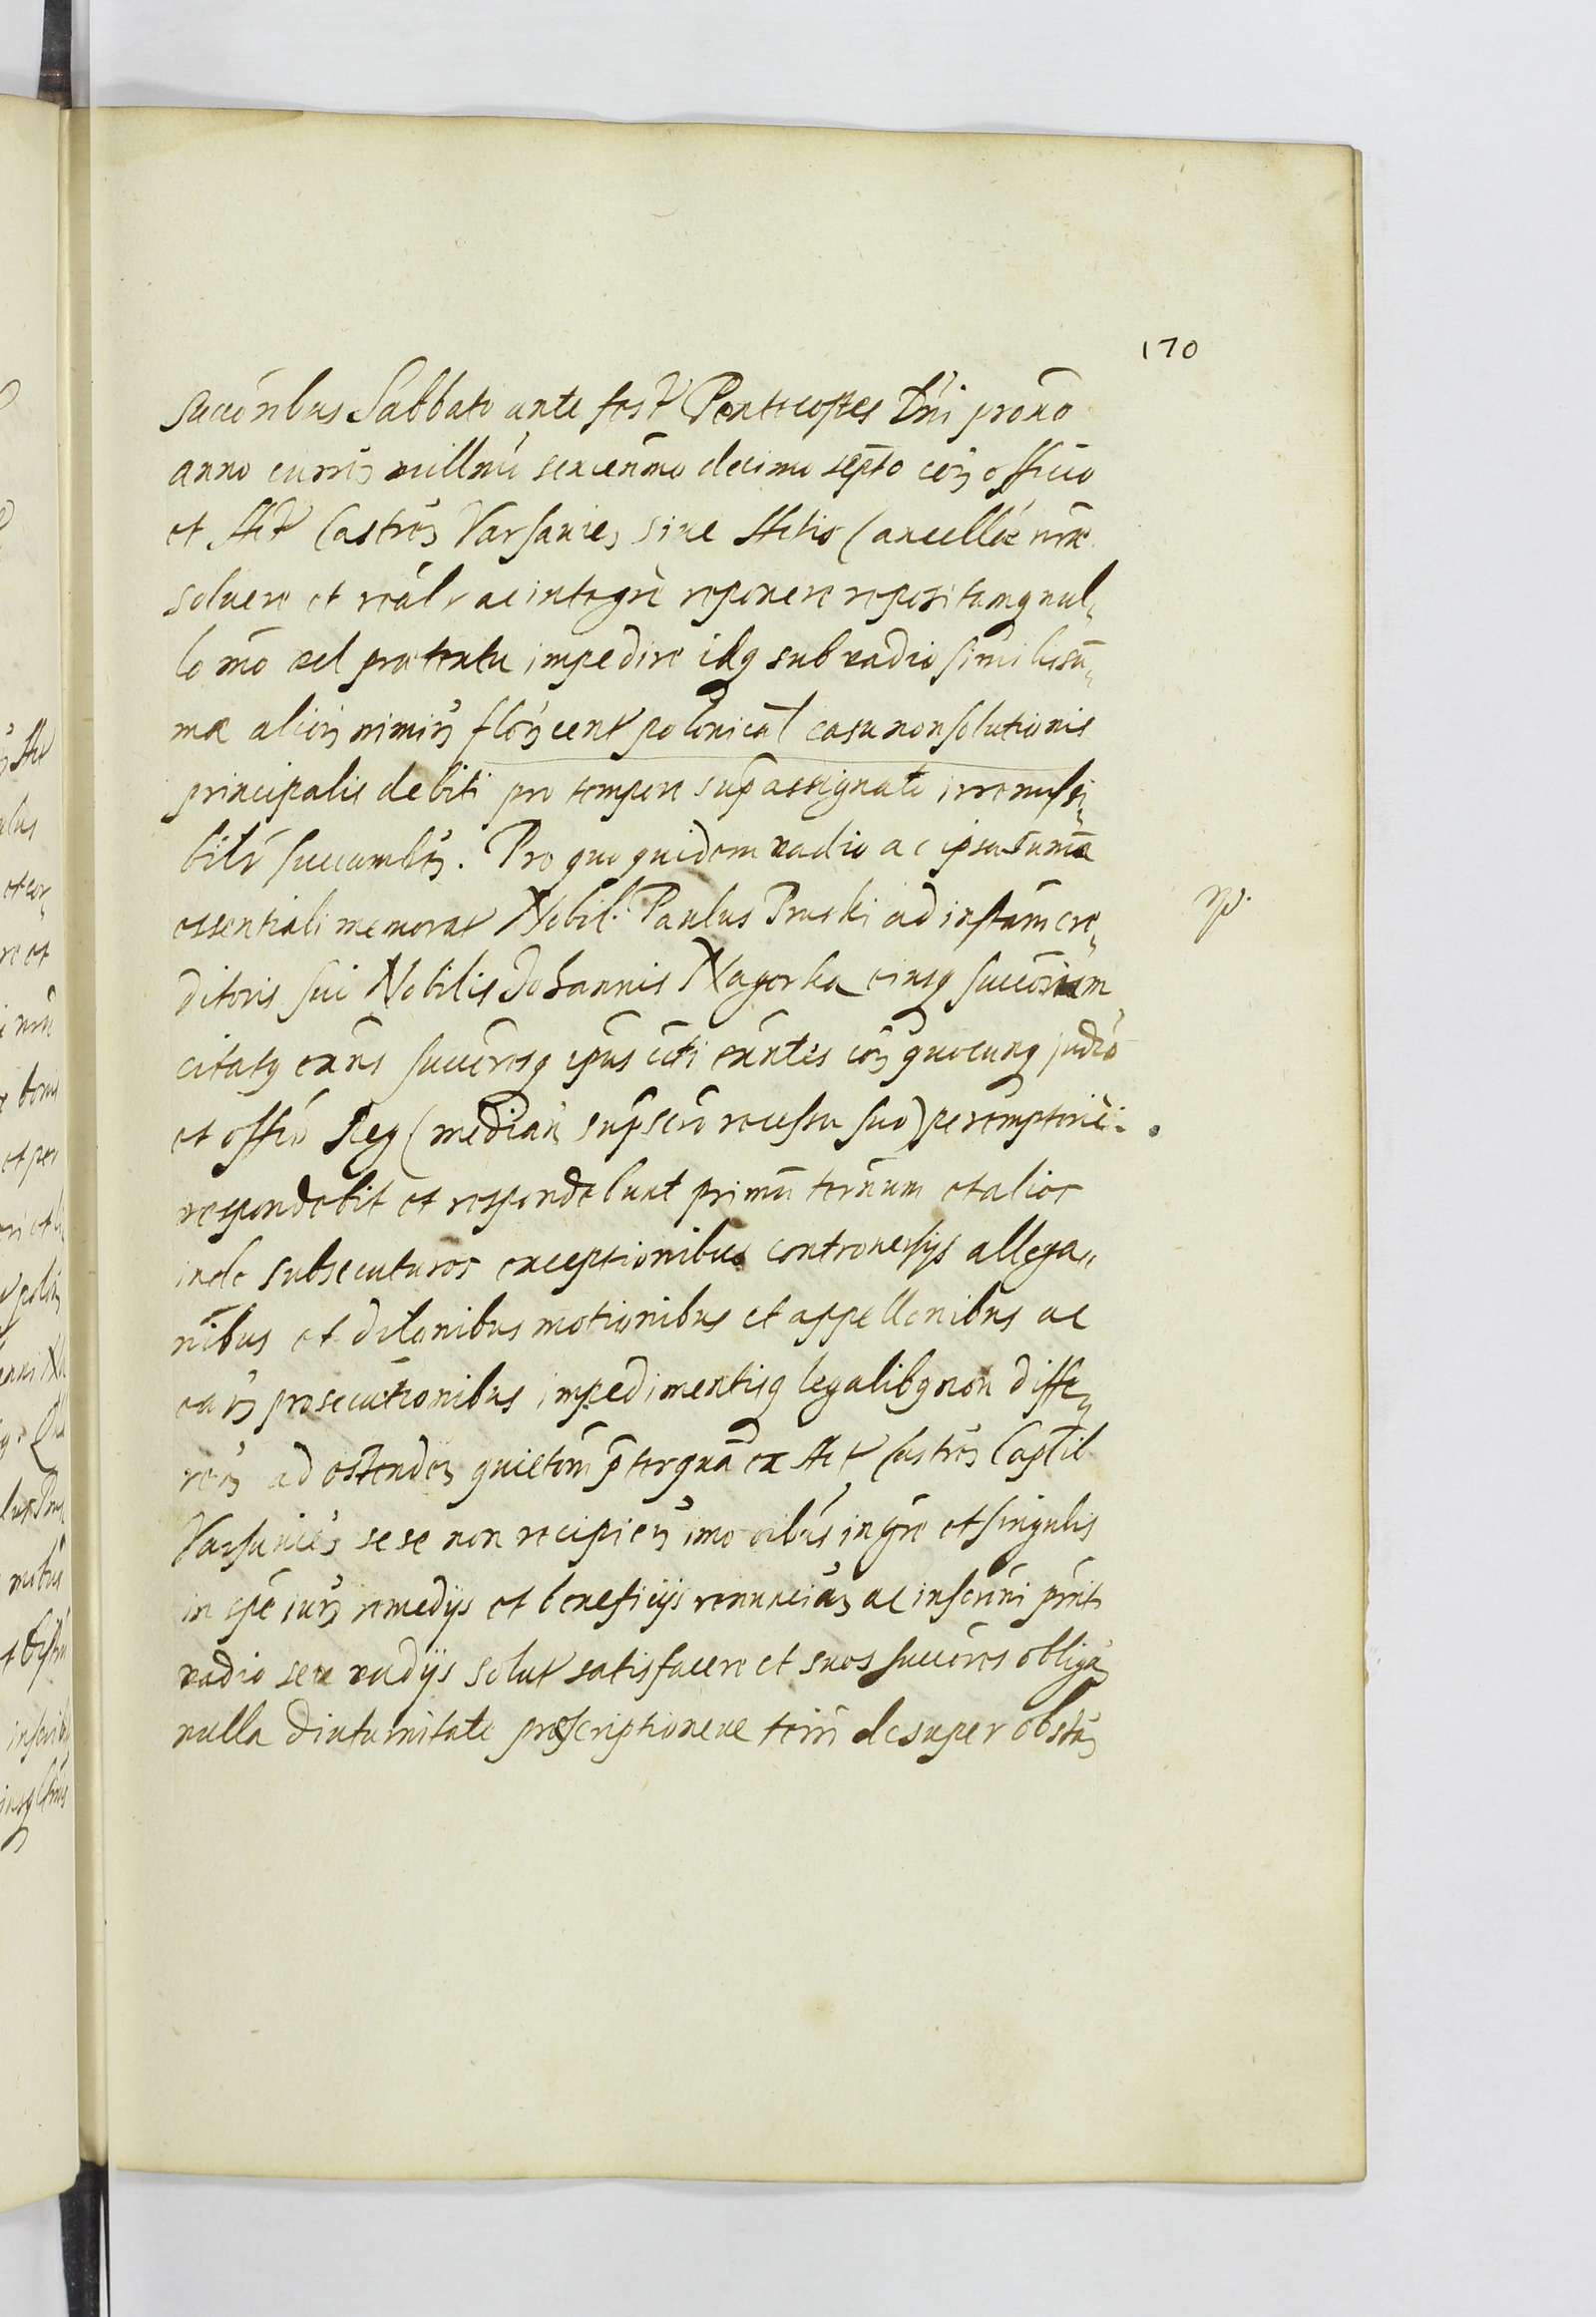 170
succoribus Sabbato ante fest Pentecostes Dni proxo
anno curren millmo sexcenmo decimo septo cor officio
et Act Castren Varsavien sive Actis Cancellae nrae
solvere et realr ac integrè reponere repositamq nul„
lo mo vel praetextu impedire idq sub vadio similis su„
mae alior nimir flor cent polonical casu non solutionis
principalis debiti pro tempore sup assignato irremissi„
bilr succumben. Pro quo quidem vadio ac ipsa suma
essentiali memorat Nobil: Paulus Pruski ad instam cre„
ditoris sui Nobilis Johannis Nagorka eiusq succorum
citatq exns succresq ipsus citi exntes cor quocunq judio
et offio Reg (median supscro recessu suo) peremptoriè
respondebit et respondebunt primu ternum et alios
inde subsecuturos exceptionibus controversijs allega„
nibus et dilonibus motionibus et appellonibus ac
ear prosecutionibus impedimentisq legalibq non diffe„
ren ad ostenden quietom pterqua ex Act Castren Captil
Varsavien sese non recipien imo oibus in gre et singulis
in spe iur remedijs et beneficijs renuncian ac inscrini pnti
vadio seu vadijs solut satisfacere et suos succores obligan
nulla diuturnitate praescriptioneve terri desuper obstan